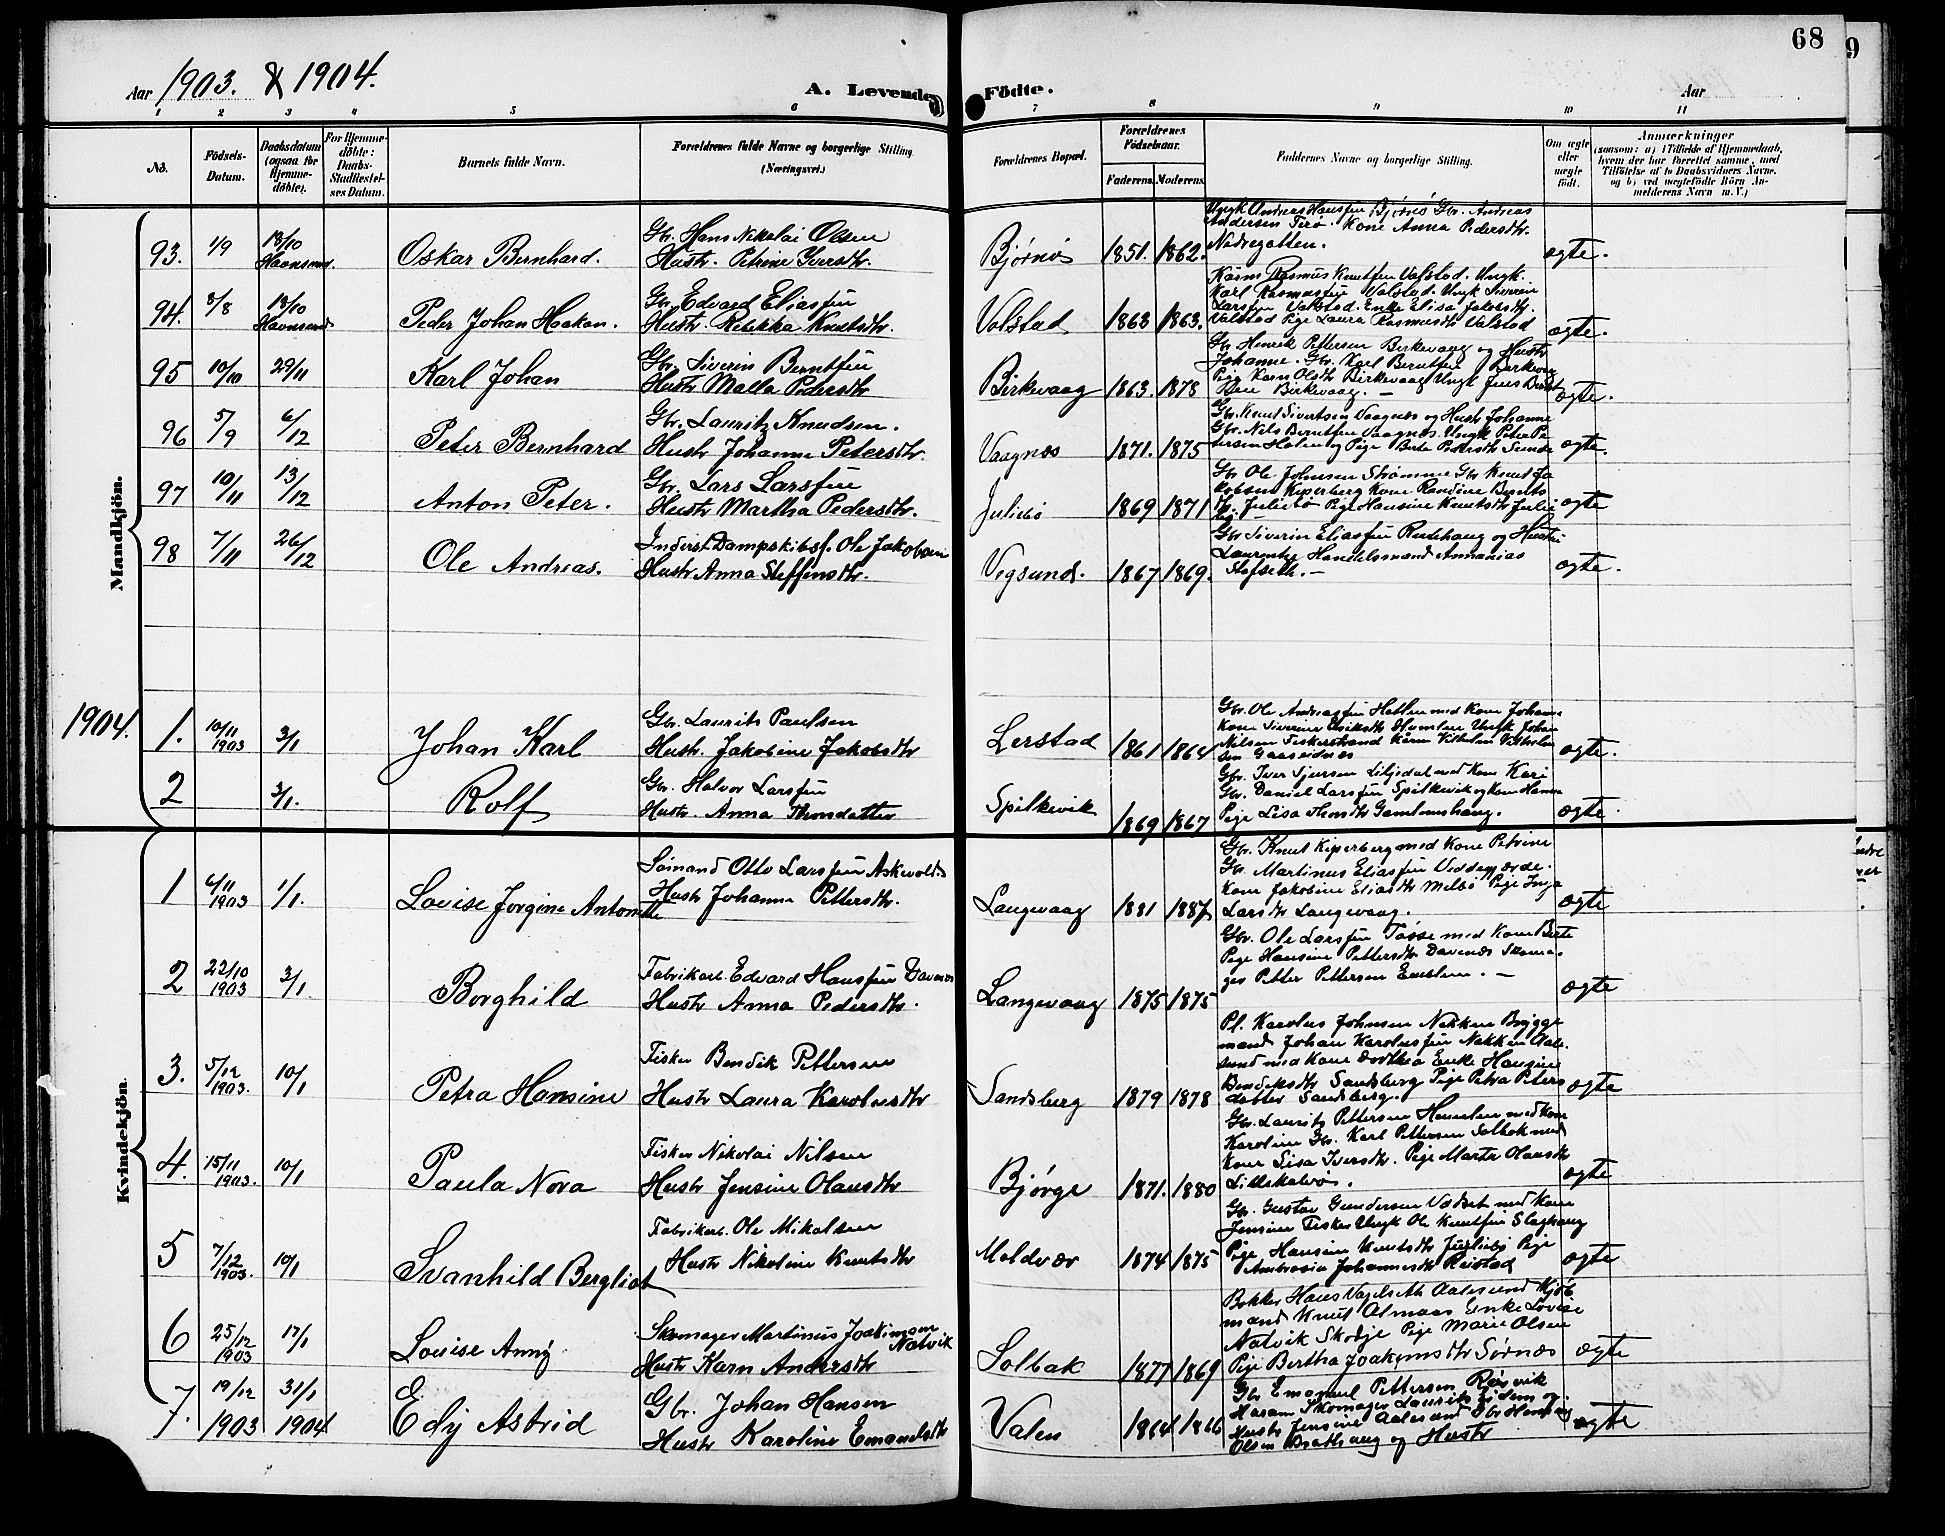 68
9
Aar 1903. & 1904.
A. Levende Födte.
Aar
1 2 3 4 5 6 7 8 9 10 11
No.
Födsels-Datum.
Daabsdatum (ogsaa for Hjemme-döbte).
For Hjemme-döbte: Daabs-Stadfæstel-ses Datum.
Barnets fulde Navn.
Forældrenes fulde Navne og borgerlige Stilling (Næringsvei.)
Forældrenes Bopæl.
Forældrenes Födselsaar.
Faderens. Moderens.
Faddernes Navne og borgerlige Stilling.
Om ægte eller uægte födt.
Anmærkninger
(saasom: a) i Tilfælde af Hjemmedaab, hvem der har forrettet samme, med Tilföielse af to Daabsvidners Navne, og b) ved uægtefödte Börn An-melderens Navn m. V.)
Mandkjön.
93. 1/9 18/10 Havnsund Oskar Bernhard. Gbr. Hans Nikolai Olsen
Hustr. Petrine Iversdtr. Bjørnø 1851. 1862.
Ungk Andreas Hansen Bjørnø Gbr. Andreas
Andersen Terø. Kone Anna Pedersdtr.
Nedregotten. ægte.
94. 8/8 18/10 Havnsund Peder Johan Haakon. Gbr. Edvard Eliassen
Hustr. Rebekka Knutsdtr. Valstad 1863 1863.
Kaarm Rasmus Knutsen Valstad. Ungk.
Karl Rasmussen Valstad. Ungk Siverin
Larssen Valstad. Enke Elisa Jakobsdtr.
Valstad Pige Laura Rasmusdtr Valstad ægte.
95 10/10 29/11 Karl Johan Gbr. Siverin Berntsen
Hustr Malla Pedersdtr Birkevaag 1863. 1878
Gbr Henrik Pettersen Birkevaag og Hustr
Johanne. Gbr. Karl Berntsen Birkevaag
Pige Karn Olsdtr Birkevaag Ungk Jens Bernt
sen Birkevaag. — ægte.
96 5/9 6/12 Peter Bernhard Gbr. Lauritz Knudsen.
Hustr Johanne Petersdtr. Vaagnes 1871. 1875
Gbr. Knut Sivertsen Vaagnes og Hustr Johanne
Gbr. Nils Berntsen Vaagnes. Ungk Peter Pe
tersen Holen og Pige Berte Pedersdtr Sunde ægte.
97 10/11 13/12 Anton Peter. Gbr. Lars Larssen
Hustr Martha Pedersdtr. Juliebø 1869 1871
Gbr Ole Johnsen Strømme Gbr Knut Ja
kobsen Kiperberg Kone Randine Bernts
dtr. Juliebø Pige Hansine Knutsdtr Julie
bø — ægte
98 7/11 26/12 Ole Andreas. Inderst Dampskibsf. Ole Jakobsen
Hustr Anna Steffensdtr. Vegsund. 1867 1869.
Gbr Siverin Eliassen Rudehaug og Hustr
Laurentze Handelsmand Annanias
Hofseth. — ægte.
1904.
1. 10/11 1903 3/1 Johan Karl Gbr. Laurits Paulsen
Hustr. Jakobine Jakobsdtr Lerstad 1861 1864
Gbr. Ole Andreassen Hatlen med Kone Johanne
Kone Siverine Eriksdtr Humlen Ungk Johan
Nilsen Fiskerstrand Kaarm Vilhelm Vilhelm
sen Gaaseidnes ægte.
2 3/1. Rolf Gbr. Halvor Larssen
Hustr. Anna Throndatter Spilkevik 1869 1867
Gbr. Iver Sjursen Liljedal med Kone Kari
Gbr. Daniel Larssen Spilkevik og Kone Hanna
Pige Lisa Thorsdtr Gamlemshaug. ægte.
Kvindekjön.
1 6/11 1903 1/1. Lovise Jørgine Antonette Sømand Otto Larssen Askevold
Hustr Johanne Pettersdtr. Langevaag 1881 1887
Gbr. Knut Kiperberg med Kone Petrine
Gbr. Martinus Eliassen Veddegjærde.
Kone Jakobine Eliasdtr Melbø Pige Inga
Larsdtr Langevaag. ægte
2 22/10 1903 3/1 Borghild Fabrikarb. Edvard Hanssen Davenes
Hustr Anna Pedersdtr. Langevaag 1875 1875
Gbr. Ole Larssen Tosse med Kone Berte
Pige Hansine Pettersdtr Davenes Skoma
ger Petter Pettersen Emblem. — ægte
3. 5/12 1903. 10/1 Petra Hansine Fisker Bendik Pettersen
Hustr Laura Karolusdtr Sandsberg 1879 1878
Pl. Karolus Johnsen Nakken Brygge
mand Johan Karolussen Nakken Aale
sund med Kone Dorthea Enke Hansine
Bendiksdtr Sandsberg Pige Petra Peters
datter Sandsberg. ægte
4. 15/11 1903. 10/1 Paula Nora Fisker Nikolai Nilsen
Hustr Jensine Olausdtr Bjørge 1871. 1880
Gbr. Laurits Pettersen Humlen med Kone
Karoline Gbr. Karl Pettersen Solbak med
Kone Lisa Iversdtr. Pige Marte Olausdtr
Lillskalvø. ægte
5 7/12 1903. 10/1 Svanhild Bergliot Fabrikarb. Ole Mikalsen
Hustr Nikoline Knutsdtr Moldvær 1874 1875
Gbr. Gustav Gundersen Vedset med Kone
Jensine Fisker Ungk Ole Knutsen Slaghaug
Pige Hansine Knutsdtr Juliebø Pige
Ambrosia Johannesdtr Reistad ægte
6 25/12 1903 17/1 Louise Anny Skomager Martinus Joakimsen Natvik
Hustr Karn Andersdtr Solbak 1877 1869
Bøkker Hans Vagelseth Aalesund Kjøb
mand Knut Almaas Enke Lovise
Natvik Skodje Pige Marie Olsen
Pige Bertha Joakimsdtr Sørnæs ægte
7. 19/12 1903 31/1 1904 Edy Astrid Gbr. Johan Hansen
Hustr Karoline Emanelsdtr Valen 1864 1866
Gbr Emanuel Pettersen Røsvik
Haram Skomager Laurits Eidem og
Hustr Jensine Aalesund Gbr
Olsen Brathaug og Hustr ægte